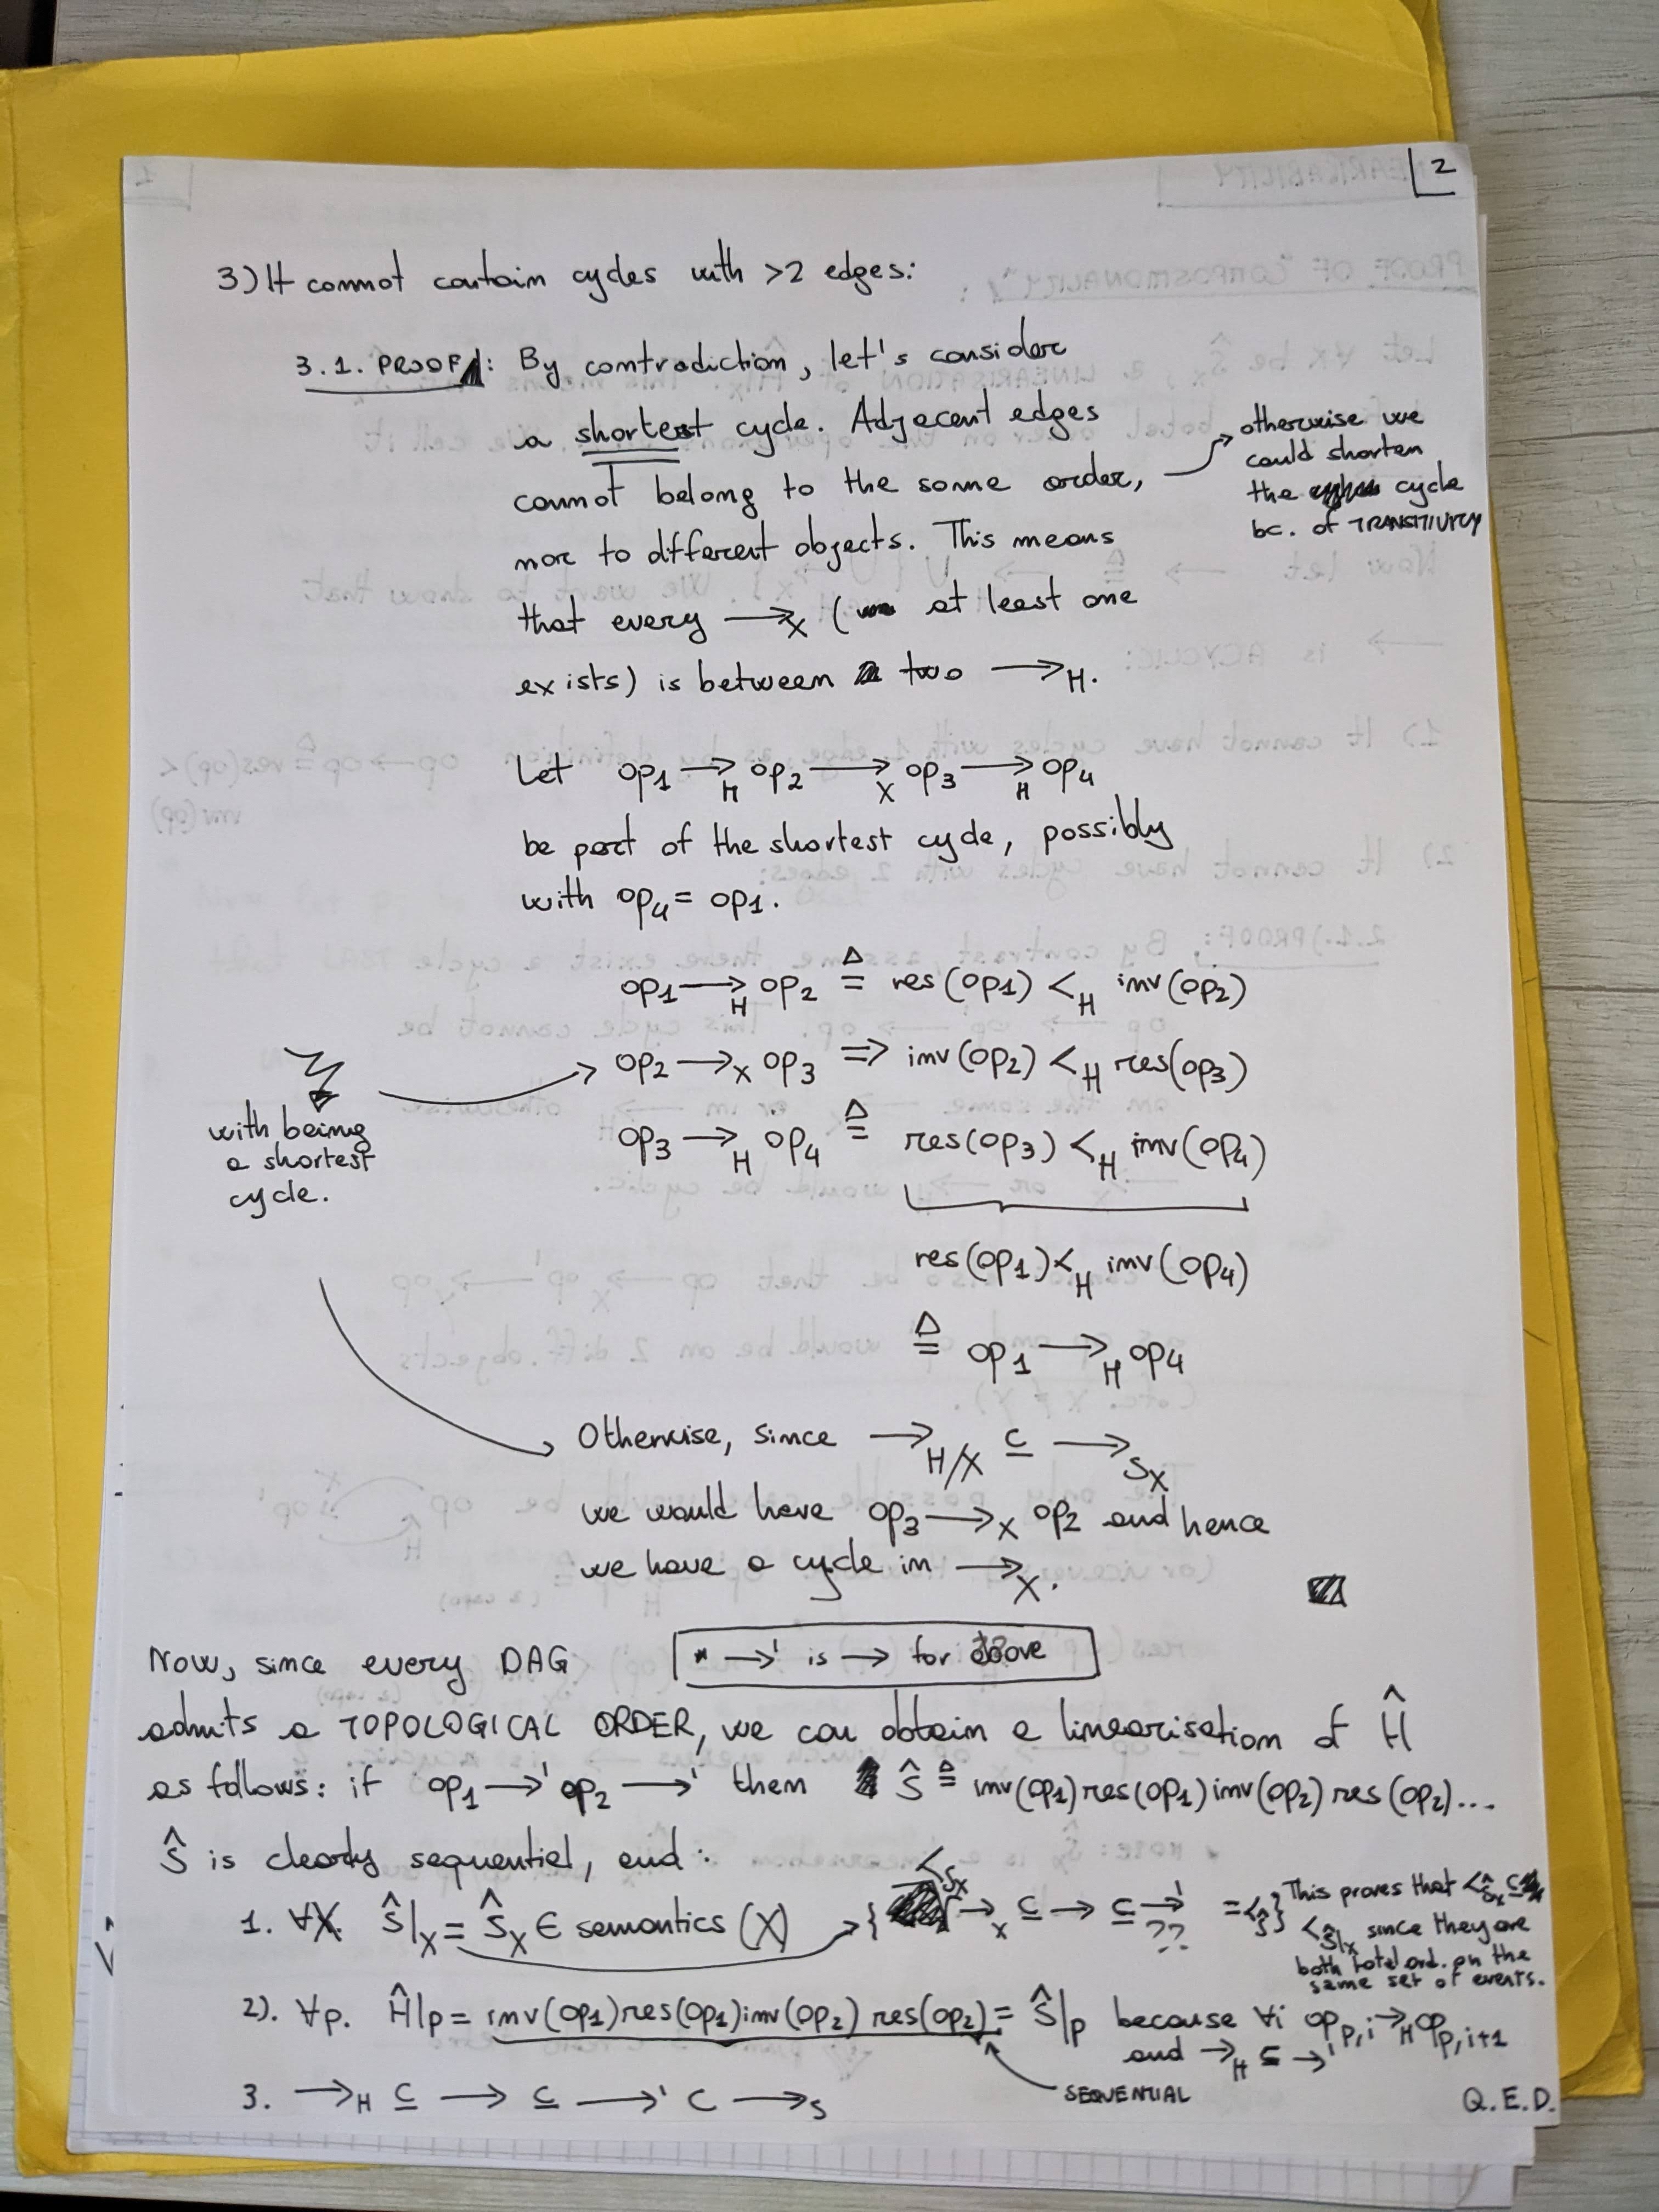 2
3) It cannot contain cycles with >2 edges:
3.1. PROOF: By contradiction, let's consider
a shortest cycle. Adjacent edges
cannot belong to the same order,
nor to different objects. This means
that every →x (at least one
exists) is between two →H.
otherwise we
could shorten
the cycle
bc. of TRANSITIVITY
Let op1 →H op2 →X op3 →H op4
be part of the shortest cycle, possibly
with op4 = op1.
op1 →H op2 ≜ res(op1) <H inv(op2)
op2 →X op3 => inv(op2) <H res(op3)
op3 →H op4 ≜ res(op3) <H inv(op4)
with being
a shortest
cycle.
res(op1) <H inv(op4)
≜ op1 →H op4
Otherwise, since →H/X ⊆ →SX
we would have op3 →X op2 and hence
we have a cycle in →X.
Now, since every DAG
* →' is → for above
admits a TOPOLOGICAL ORDER, we can obtain a linearisation of Ĥ
as follows: if op1 →' op2 →' then Ŝ ≜ inv(op1) res(op1) inv(op2) res(op2)...
Ŝ is clearly sequential, and:
1. ∀X. Ŝ|X = ŜX ∈ semantics (X) { <SX →X ⊆ → ⊆ →' = <Ŝ }
??
This proves that <ŜX ⊆
<Ŝ|X since they are
both total ord. on the
same set of events.
2). ∀p. Ĥ|p = inv(op1) res(op1) inv(op2) res(op2) = Ŝ|p because ∀i opp,i →H opp,i+1
and →H ⊆ →'
SEQUENTIAL
3. →H ⊆ → ⊆ →' ⊂ →S
Q.E.D.